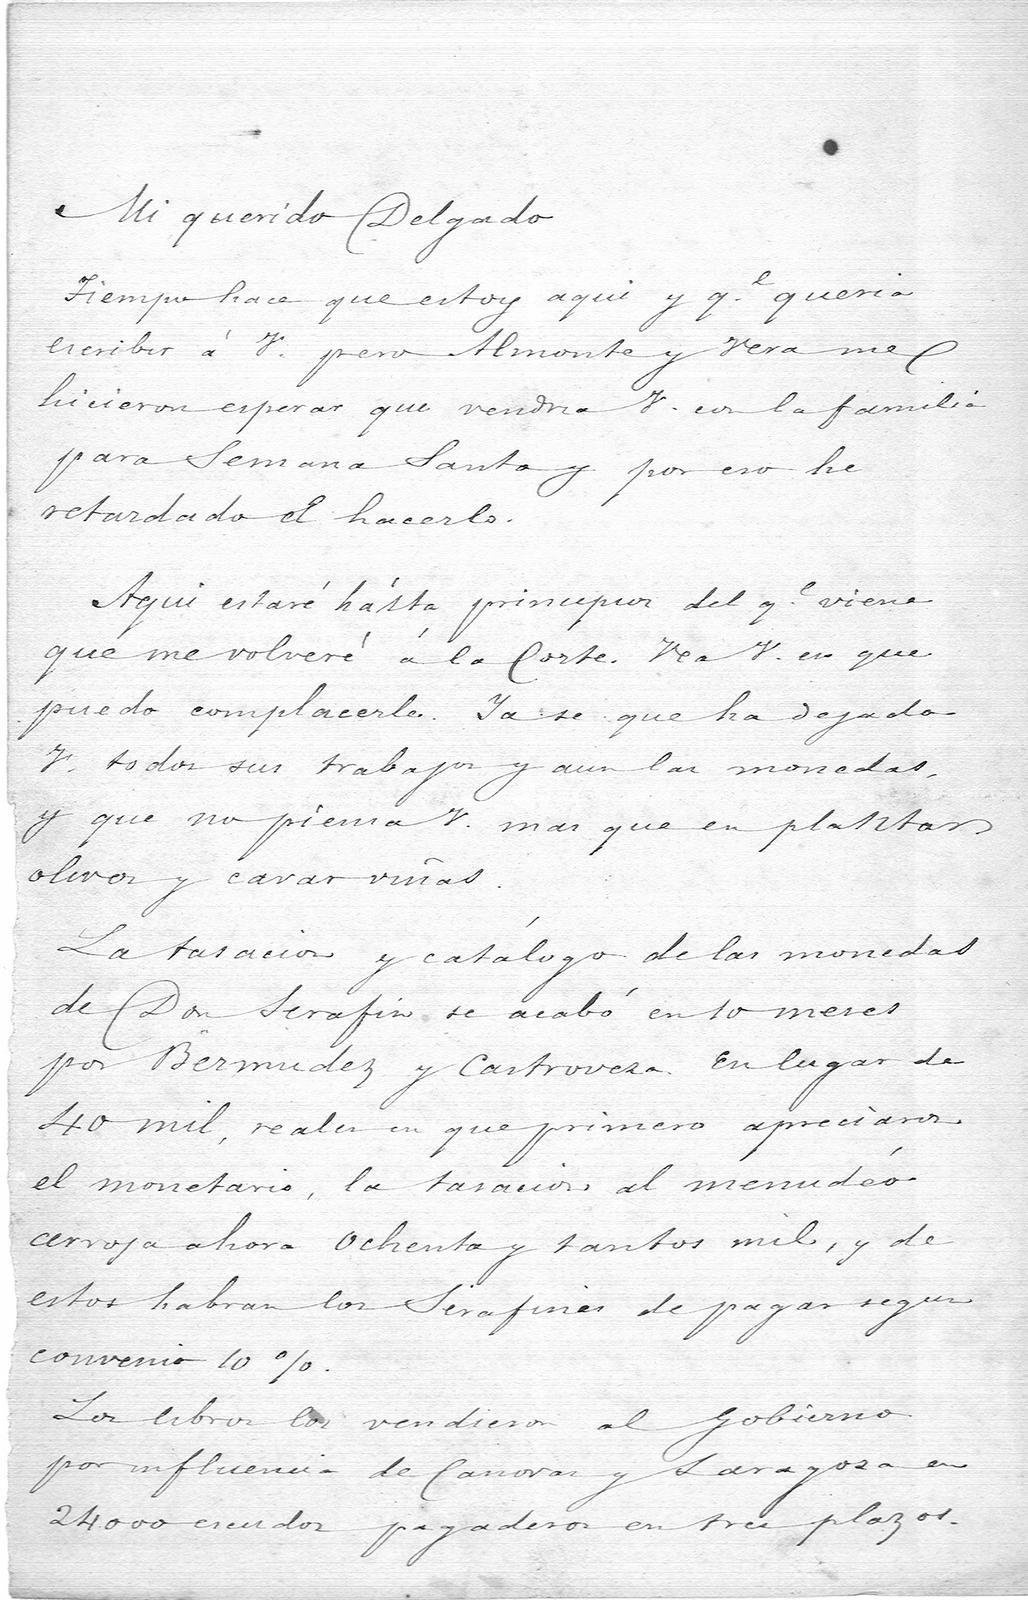 Mi querido Delgado
Tiempo hace que estoy aqui y q.e queria
escribir á V. pero Almonte y Vera me
hicieron esperar que vendria V. con la familia
para Semana Santa y por eso he
retardado el hacerlo.
Aqui estaré hásta principios del q.e viene
que me volveré á la Corte. Vea V. en que
puedo complacerle. Ya se que ha dejado
V. todos sus trabajos y aun las monedas,
y que no piensa V. mas que en plantar
olivos y cavar viñas.
La tasacion y catálogo de las monedas
de Don Serafin se acabó en 10 meses
por Bermudez y Castroveza. En lugar de
40 mil, reales en que primero apreciaron
el monetario, la tasacion al menudéo
arroja ahora Ochenta y tantos mil, y de
estos habran los Serafines de pagar segun
convenio 10 %.
Los libros los vendieron al Gobierno
por influencia de Canovas y Zaragoza en
24.000 escudos pagaderos en tres plazos.